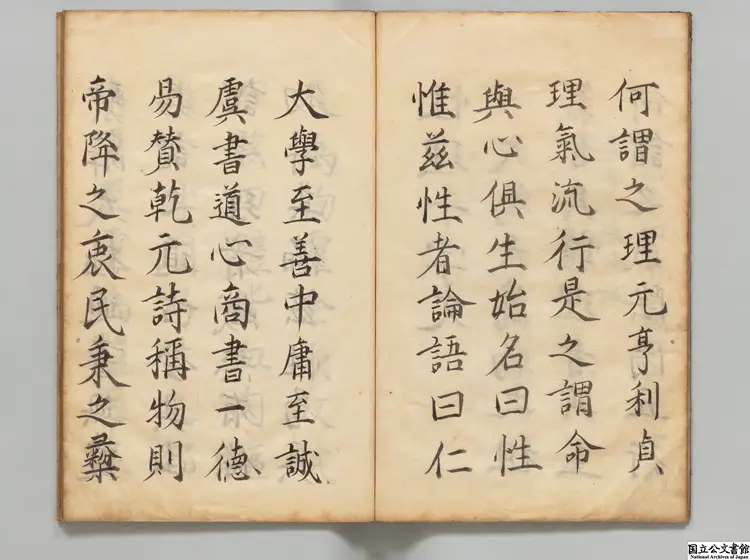 何謂之理元亨利貞
理氣流行是之謂命
與心俱生始名曰性
惟茲性者論語曰仁
大學至善中庸至誠
虞書道心商書一德
易贊乾元詩稱物則
帝降之衷民秉之彝
国立公文書館
National Archives of Japan